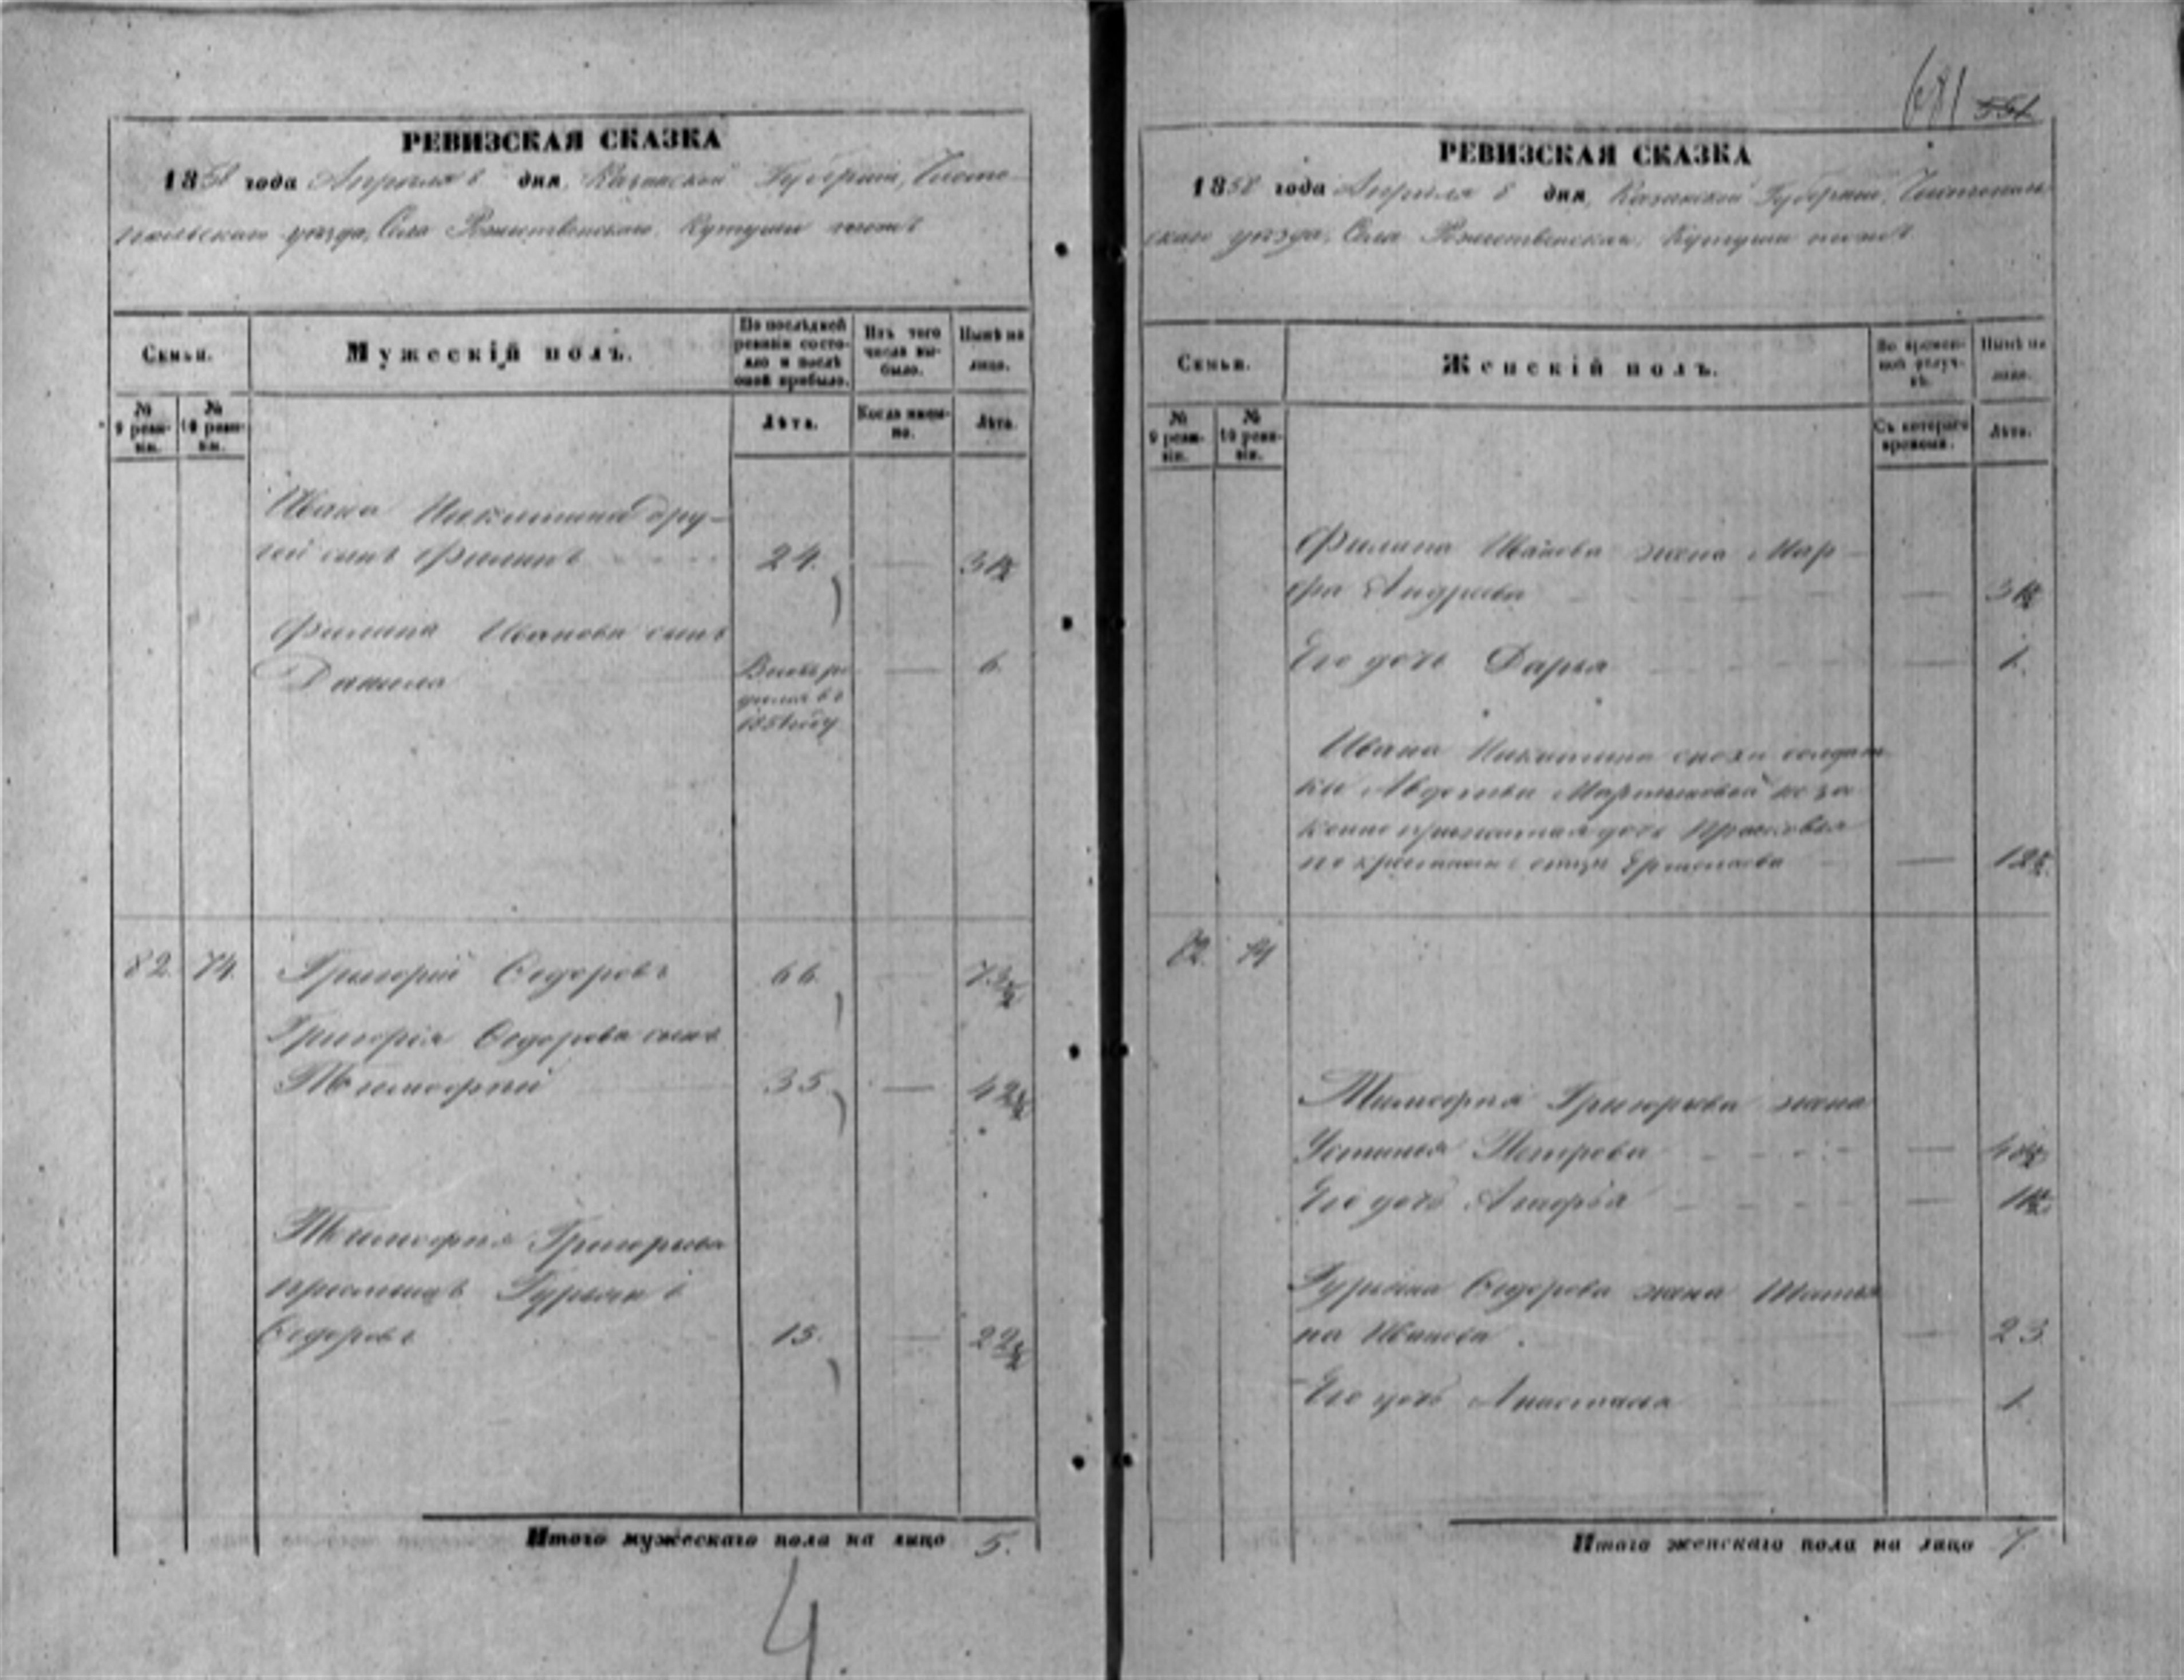 РЕВИЗСКАЯ СКАЗКА
1858 года Апреля 8 дня, Казанской Губернии, Чисто-
польскаго уезда, Села Рожественскаго, Кутуши тожъ
Семьи.
Мужескій полъ.
По послѣдней ревизіи состояло и послѣ оной прибыло.
Изъ того числа выбыло.
Нынѣ на лицо.
№ 9 ревизіи.
№ 10 ревизіи.
Лѣта.
Когда именно.
Лѣта.
Ивана Никитина дру-
гой сынъ Филипъ 24.
Филипа Иванова сынъ
Данила 6.
82. 74. Григорій Ѳедоровъ 66.
Григорія Ѳедорова сынъ
Тимофѣй 35.
Тимофѣя Григорьева
пріемышъ Гурьянъ
Ѳедоровъ 15.
Итого мужескаго пола на лицо 5.
4.
681 551
РЕВИЗСКАЯ СКАЗКА
1858 года Апреля 8 дня, Казанской Губерніи, Чистополь
скаго уезда, Села Рожественскаго, Кутуши тожъ
Семьи.
Женскій полъ.
Во временной отлучкѣ.
Нынѣ на лицо.
№ 9 ревизіи.
№ 10 ревизіи.
Съ котораго времени.
Лѣта.
Филипа Иванова жена Мар-
фа Андреева
Его дочь Дарья 1.
Ивана Никитина снохи солдат
ки Авдотьи Мартыновой не за
конно прижитая дочь Прасковья
по крестном отцѣ Ермолаева
82. 74
Тимофѣя Григорьева жена
Устинья Петрова
Его дочь
Гурьяна Ѳедорова жена Татья
на Иванова 23.
Его дочь Анастасья 1.
Итого женскаго пола на лицо 7.